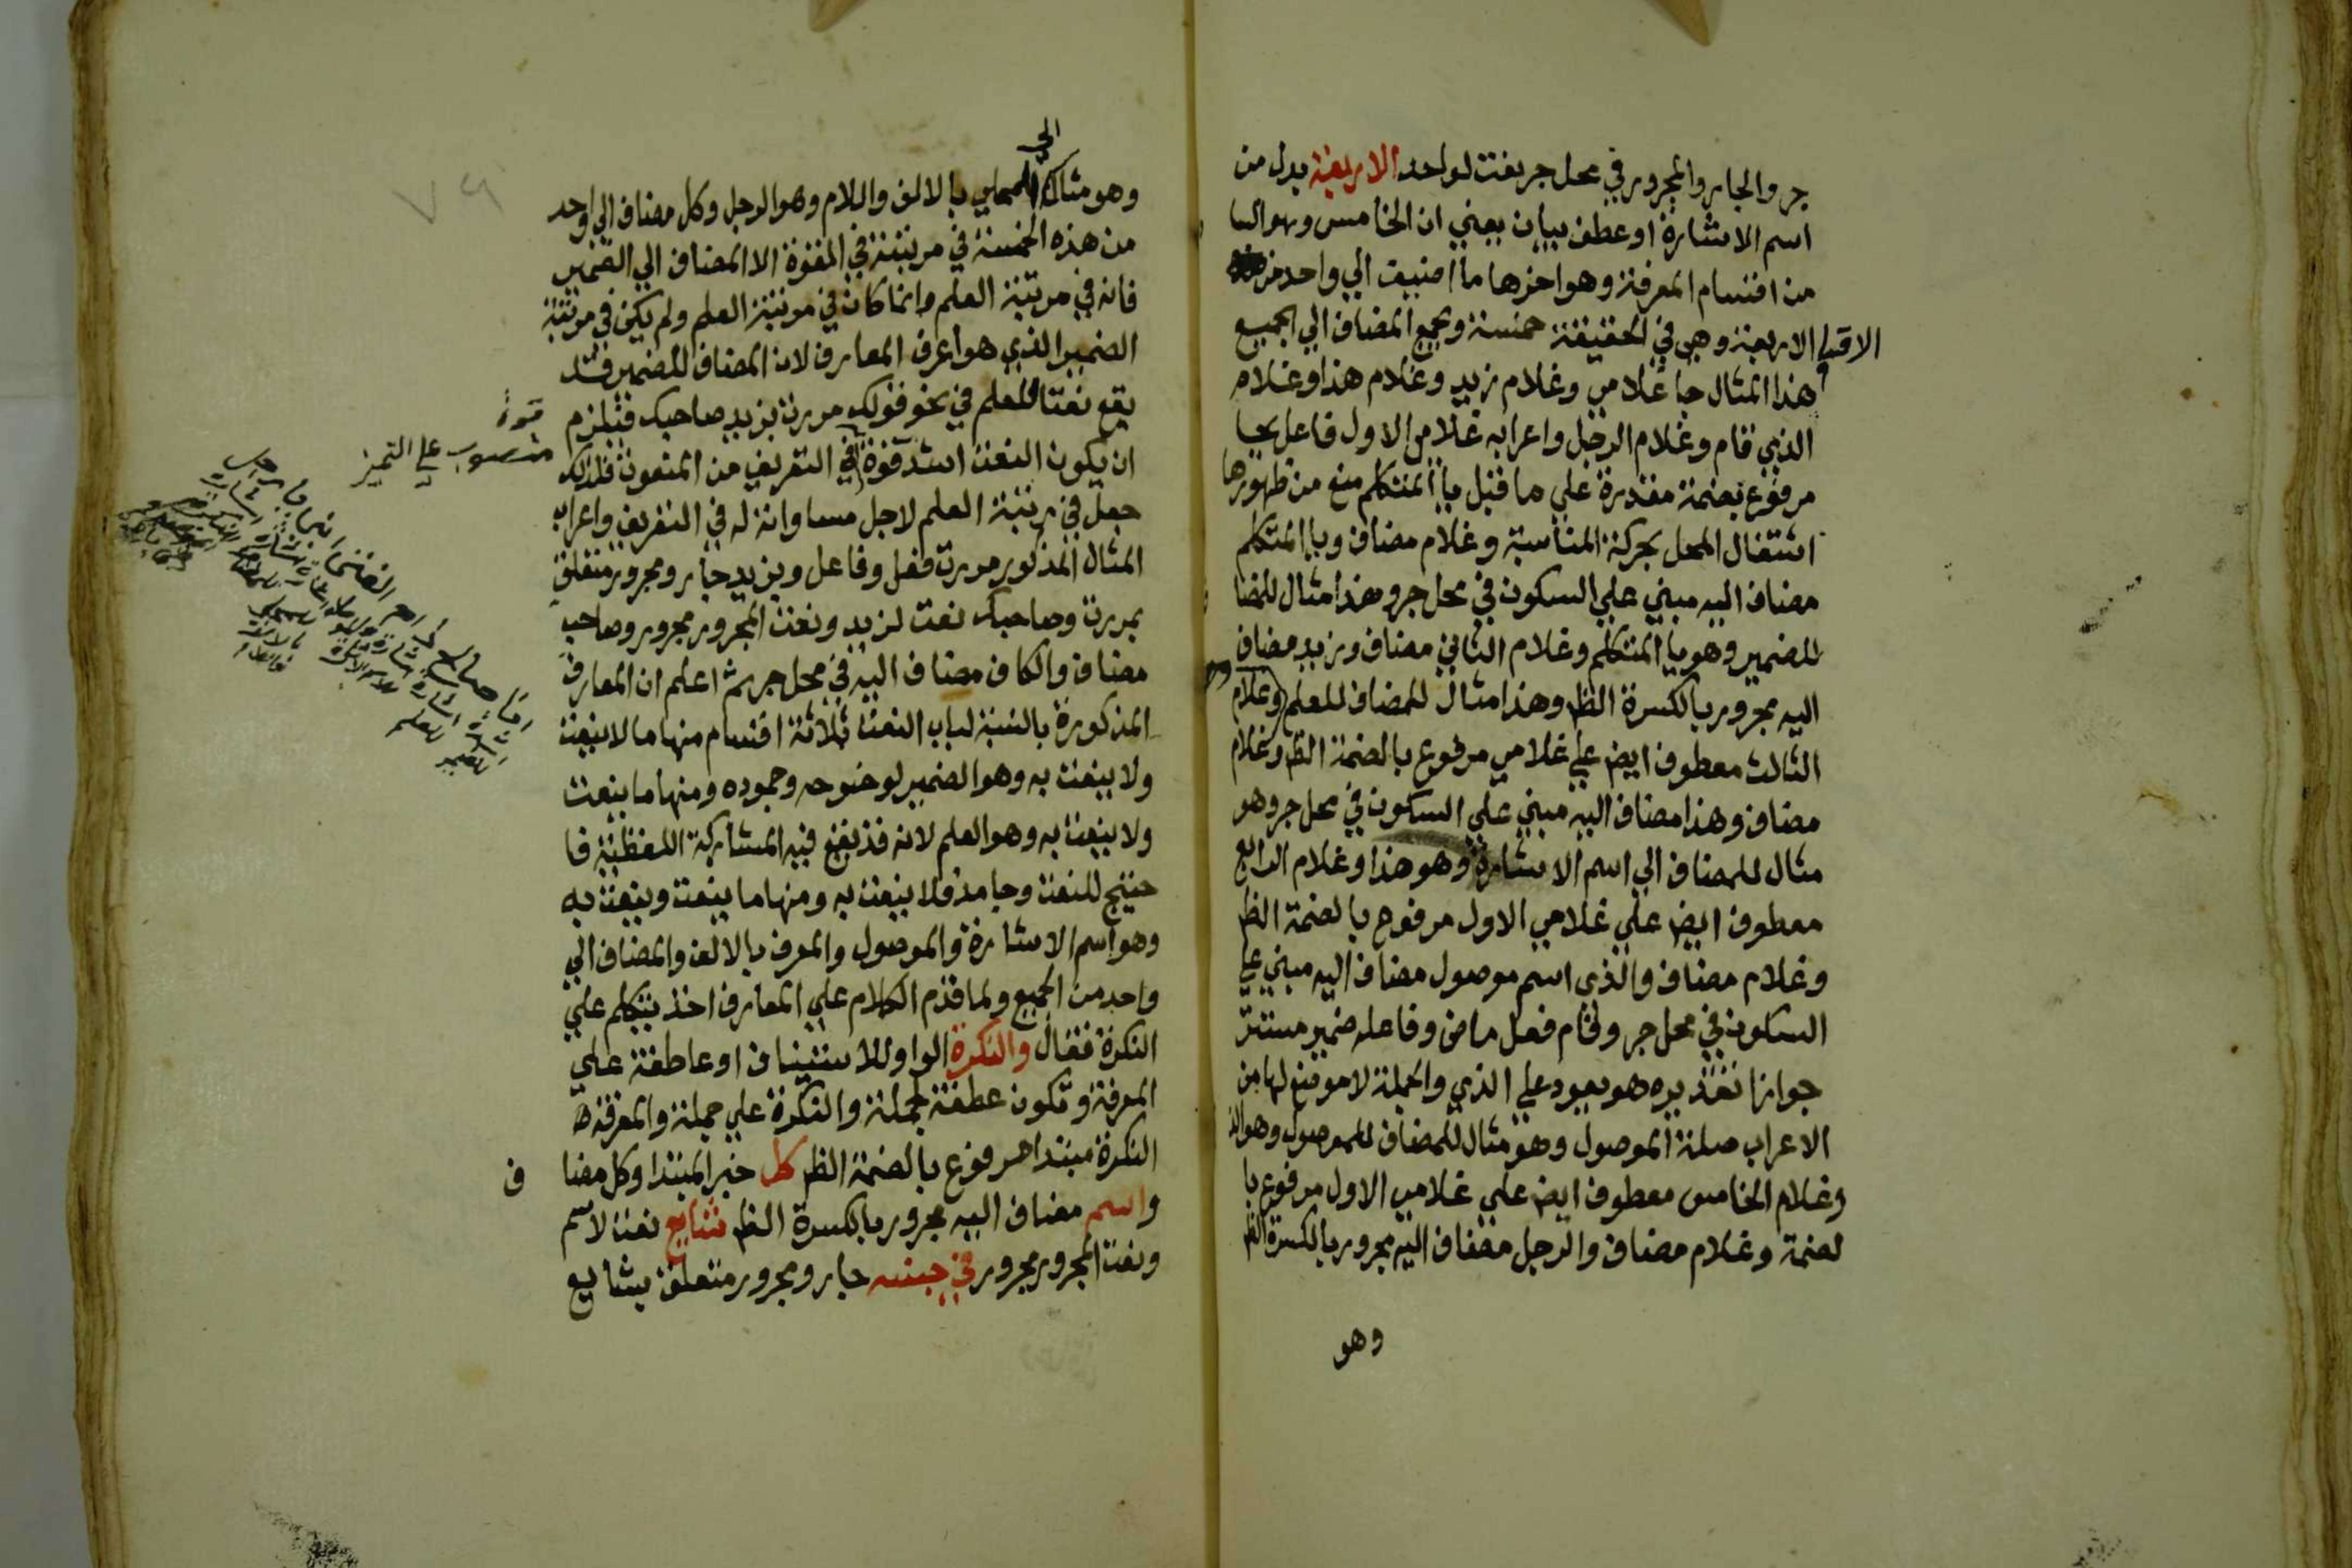 جر والجار والمجرور في محل جر نعت لواحد الاربعة بدل من
اسم الاشارة او عطف بيان يعني ان الخامس وهو السا
من اقسام المعرفة وهو اخرها ما اضيف الي واحد من
الاقسام الاربعة وهي في الحقيقة خمسة ويجمع المضاف الي الجميع
هذا المثال جا غلامي وغلام زيد وغلام هذا وغلام
الذي قام وغلام الرجل واعرابه غلامي الاول فاعل بجا
مرفوع بضمة مقدرة علي ما قبل يا المتكلم منع من ظهورها
اشتغال المحل بحركة المناسبة وغلام مضاف ويا المتكلم
مضاف اليه مبني علي السكون في محل جر وهذا مثال للمضا
للضمير وهو يا المتكلم وغلام الثاني مضاف وزيد مضاف
اليه مجرور بالكسرة الظ وهذا مثال للمضاف للعلم وغلام
الثالث معطوف ايض علي غلامي مرفوع بالضمة الظ وغلام
مضاف وهذا مضاف اليه مبني علي السكون في محل جر وهو
مثال للمضاف الي اسم الاشارة وهو هذا وغلام الرابع
معطوف ايض علي غلامي الاول مرفوع بالضمة الظ
وغلام مضاف والذي اسم موصول مضاف اليه مبني علي
السكون في محل جر وقام فعل ماض وفاعله ضمير مستتر
جوازا تقديره هو يعود علي الذي والجملة لا موضع لها من
الاعراب صلة الموصول وهو مثال للمضاف للموصول وهو الذ
وغلام الخامس معطوف ايض علي غلامي الاول مرفوع با
لضمة وغلام مضاف والرجل مضاف اليه مجرور بالكسرة الظ
وهو
الي
وهو مثال المحلي بالالف واللام وهو الرجل وكل مضاف الي واحد
من هذه الخمسة في مرتبته في القوة الا المضاف الي الضمير
فانه في مرتبة العلم وانما كان في مرتبة العلم ولم يكن في مرتبة
الضمير الذي هو اعرف المعارف لان المضاف للضمير قد
يقع نعتا للعلم في نحو قولك مررت بزيد صاحبك فيلزم
ان يكون النعت اشد قوة في التعريف من المنعوت فلذلك
جعل في مرتبة العلم لاجل مساواته له في التعريف واعراب
المثال المذكور مررت فعل وفاعل وبزيد جار ومجرور متعلق
بمررت وصاحبك نعت لزيد ونعت المجرور مجرور وصاحب
مضاف والكاف مضاف اليه في محل جر ثم اعلم ان المعارف
المذكورة بالنسبة لباب النعت ثلاثة اقسام منها ما لا ينعت
ولا ينعت به وهو الضمير لوضوحه وجموده ومنها ما ينعت
ولا ينعت به وهو العلم لانه قد يقع فيه المشاركة اللفظية فا
حتيج للنعت وجامد فلا ينعت به ومنها ما ينعت وينعت به
وهو اسم الاشارة والموصول والمعرف بالالف والمضاف الي
واحد من الجميع ولما قدم الكلام علي المعارف اخذ يتكلم علي
النكرة فقال والنكرة الواو للاستيناف او عاطفة علي
المعرفة وتكون عطفة جملة والنكرة علي جملة والمعرفة
النكرة مبتدا مرفوع بالضمة الظ كل خبر المبتدا وكل مضا
ف
واسم مضاف اليه مجرور بالكسرة الظ شايع نعت لاسم
ونعت المجرور مجرور في جنسه جار ومجرور متعلق بشايع
قوة
منصوب علي التميز